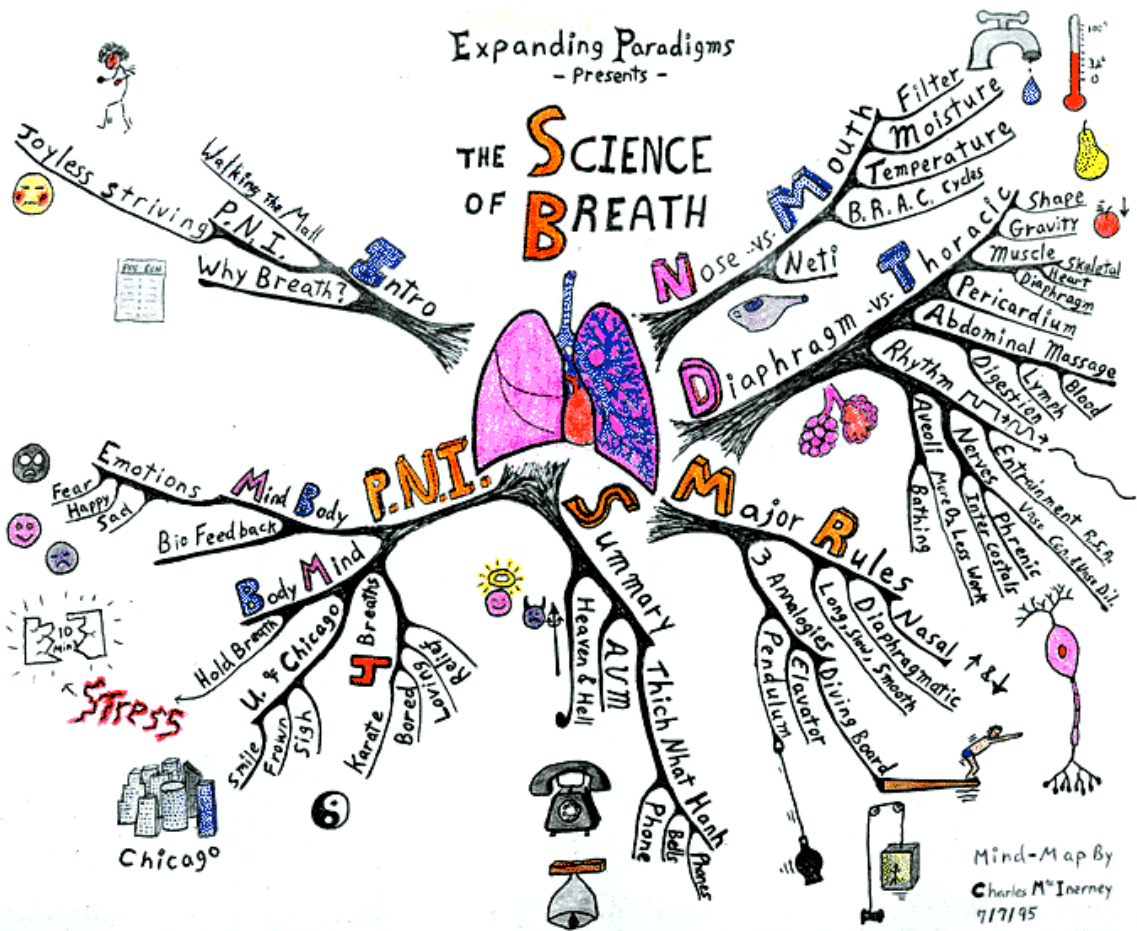 Expanding Paradigms
- Presents -
THE SCIENCE
OF BREATH
Intro
Walking the Mall
P.N.I.
Joyless Striving
Why Breath?
Nose -vs- Mouth
Filter
Moisture
Temperature
B.R.A.C. Cycles
Neti
100°
0
Diaphragm -vs- Thoracic
Shape
Gravity
Muscle
Skeletal
Heart
Diaphragm
Pericardium
Abdominal Massage
Digestion
Lymph
Blood
Rhythm
Entrainment R.S.A.
Vaso Con. & Vaso Dil.
Nerves
Phrenic
Intercostals
Aveoli
More O2 Less Work
Bathing
Major Rules
Nasal
Diaphragmatic
Long, Slow, Smooth
3 Analogies
Diving Board
Elavator
Pendulum
&
Summary
Heaven & Hell
AUM
Thich Nhat Hanh
Phone
Bells
Phones
P.N.I.
Mind Body
Emotions
Fear
Happy
Sad
Bio Feedback
Body Mind
Hold Breath
Stress
10
Min
U. of Chicago
Smile
Frown
Sigh
J Breaths
Karate
Bored
Loving
Relief
Chicago
Mind-Map By
Charles McInerney
7/7/95